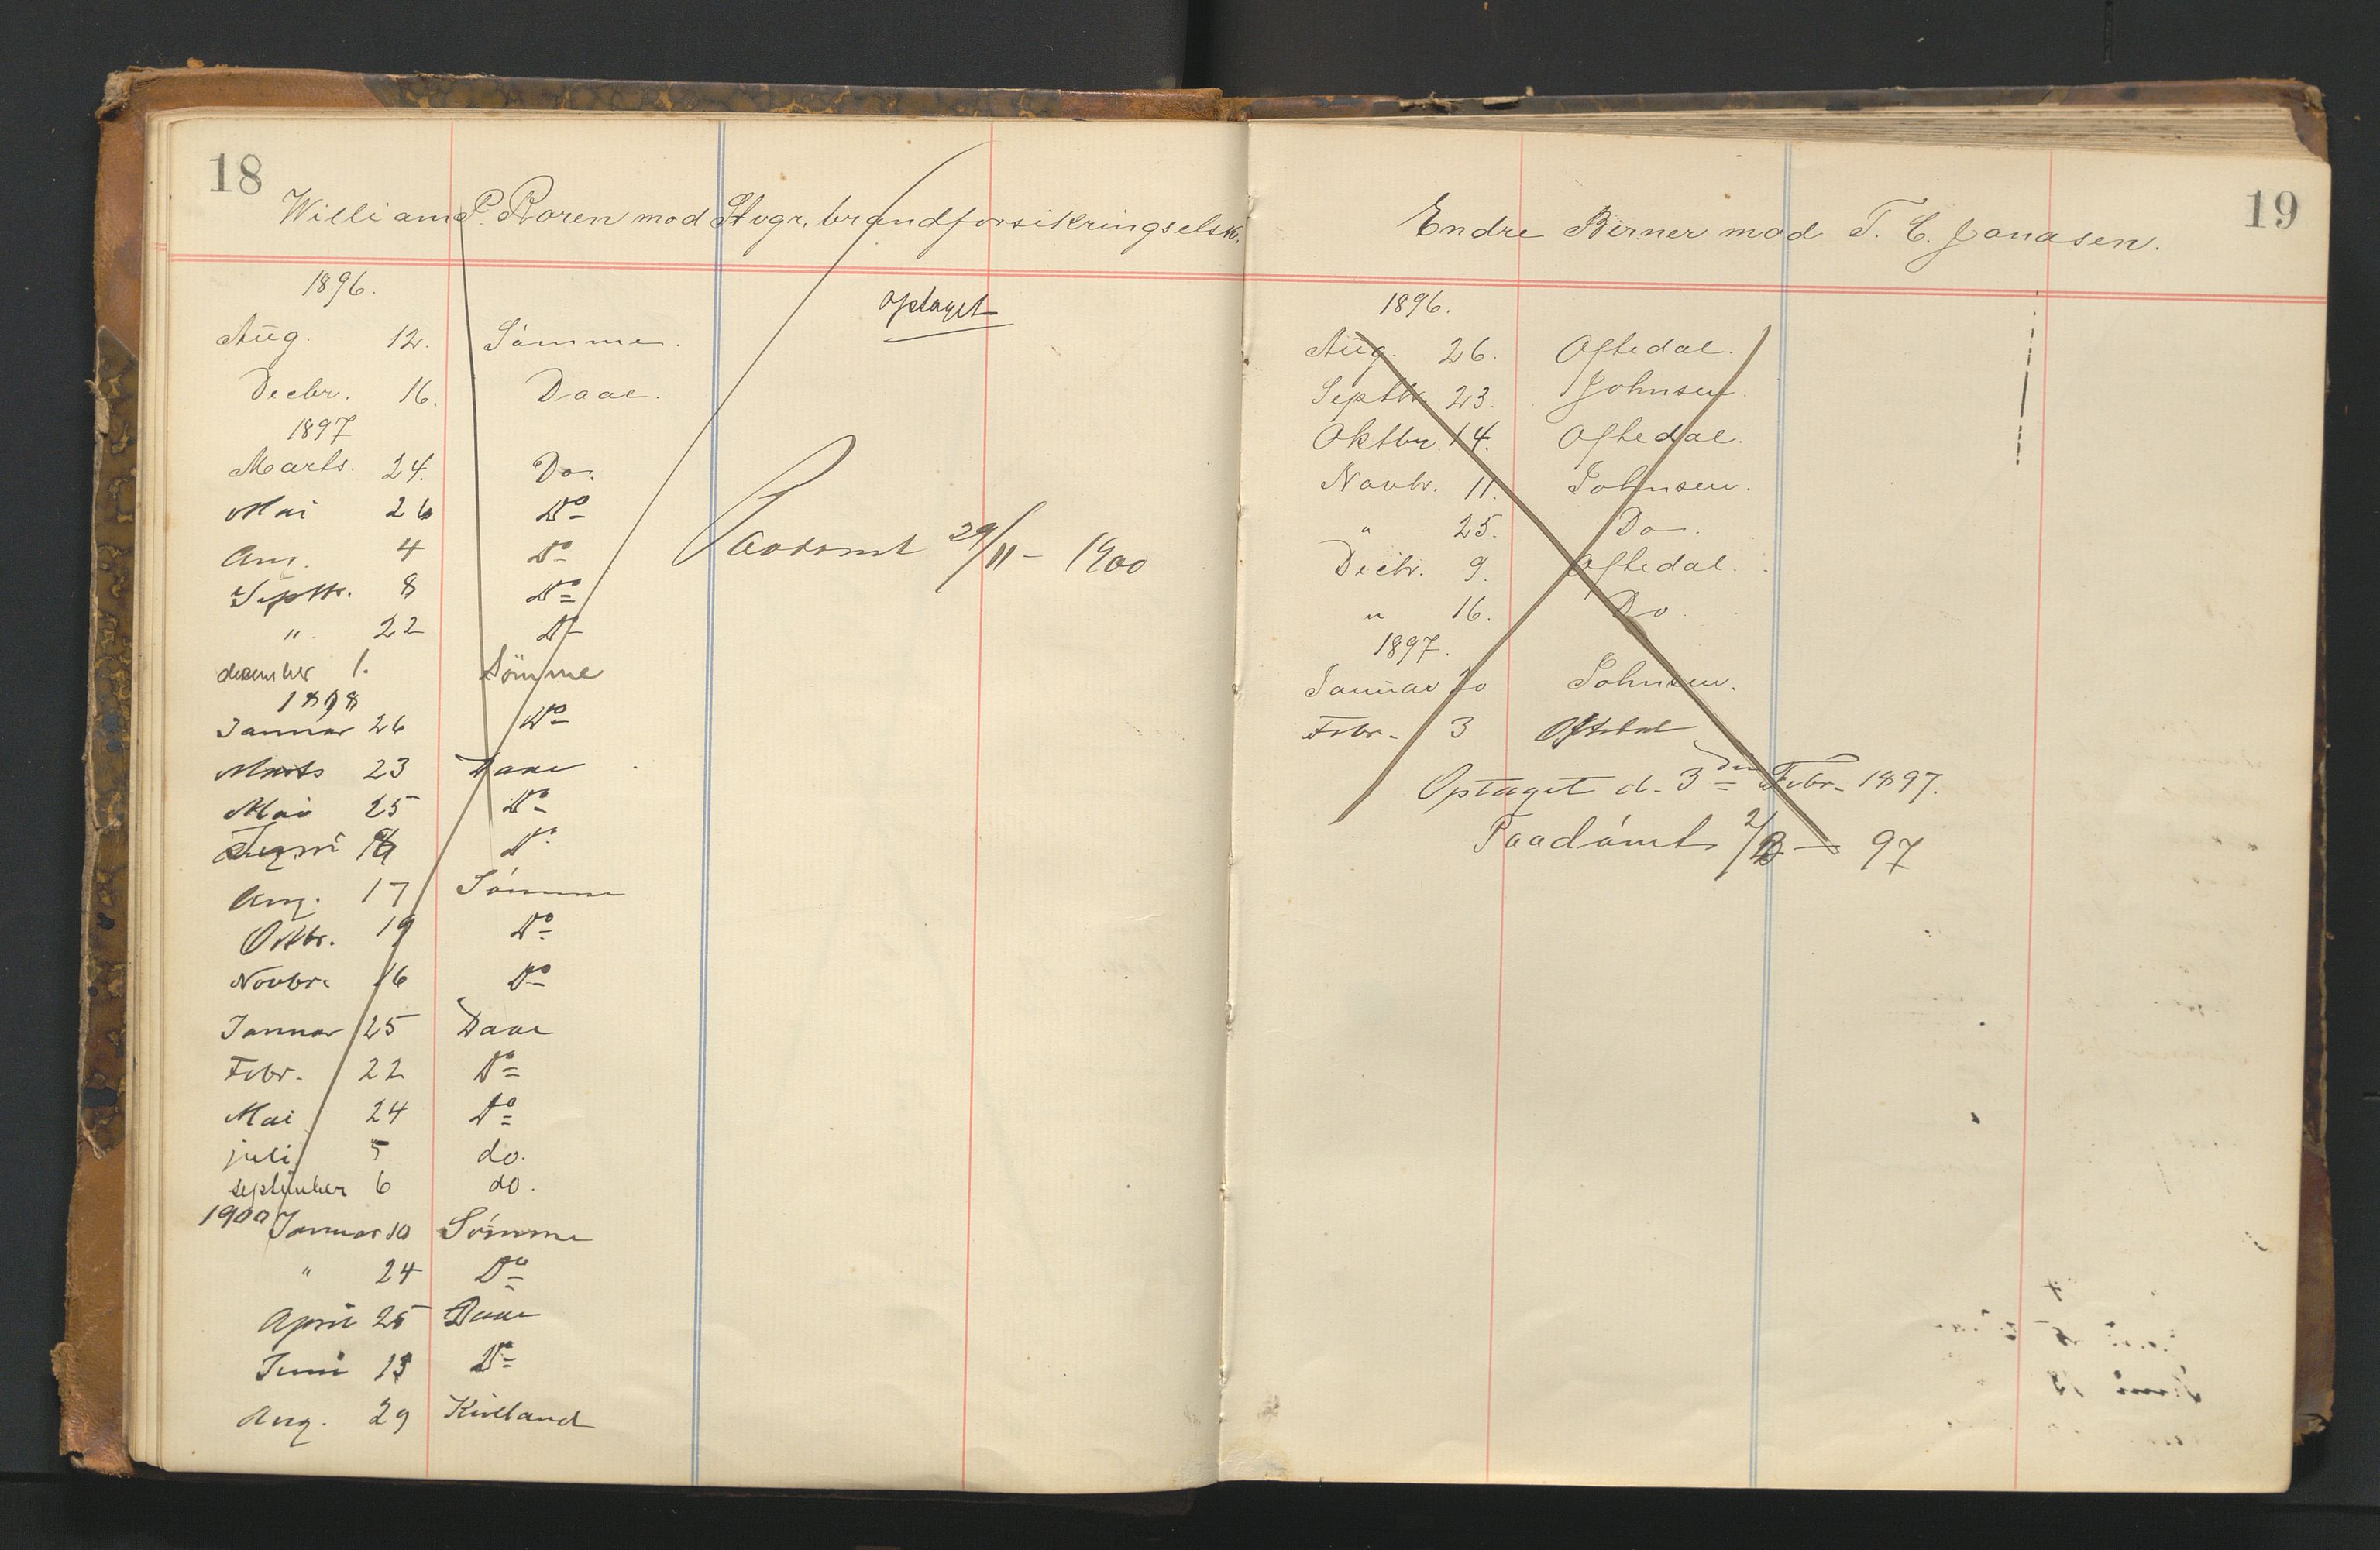 18
William P. Boren mod Stvgr. brandforsikringselsk.
1896.
optaget
Aug. 12. Sømme.
Decbr. 16. Daae.
1897
Marts. 24. Do.
Mai 26 Do
Aug. 4 Do
Septbr. 8 Do
" 22 Do
Paadømt 29/11 - 1900
december 1. Sömme
1898
Januar 26 Do
Marts 23 Daae
Mai 25 Do
Juni Do
Aug. 17 Sømme
Octbr. 19 Do
Novbr. 16 Do
Januar 25 Daae
Febr. 22 Do
Mai 24 Do
juli 5 do.
september 6 do.
1900 Januar 10 Sømme
" 24 Do
April 25 Daae
Juni 13 Do
Aug. 29 Kielland
19
Endre Birner mod T. C. Jonasen.
1896.
Aug. 26. Oftedal.
Septbr. 23. Johnsen.
Oktbr. 14. Oftedal.
Novbr. 11. Johnsen.
" 25. Do.
Decbr. 9. Oftedal.
" 16. Do.
1897.
Januar 20 Johnsen.
Febr. 3 Oftedal
Optaget d. 3den Febr. 1897.
Paadømt 97